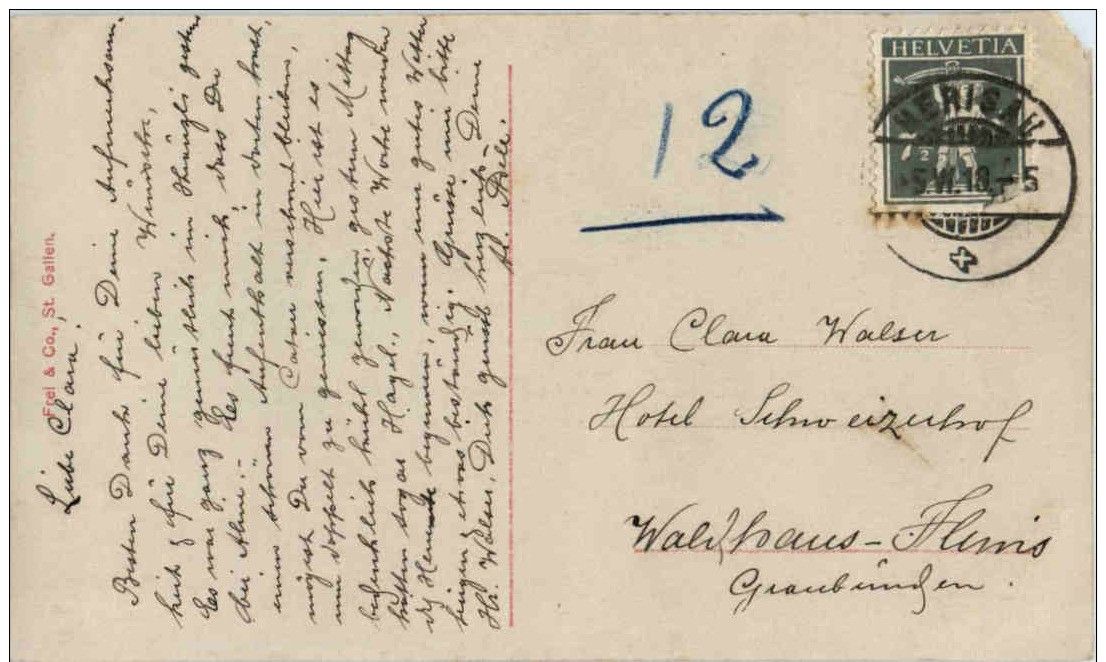 Liebe Clara!
Besten Dank für Deine Aufmerksam-
keit & für Deine lieben Wünsche,
Es war ganz gemütlich im Häusli gestern
bei Ahne.- Es freut mich, dass Du
einen schönen Aufenthalt in dorten hast,
mögest Du vom Catar verschont bleiben,
um doppelt zu geniessen, Hier ist es
bedenklich kühl geworden, gestern Mittag
hatten sogar Hagel, Nächste Woche werden
d. Heuet beginnen, wenn nur gutes Wetter
etwas beständig. Grüsse mir bitte
Hr. Walser, Dich genst herzlich Deine
Adele.
Frei & Co., St. Gallen.
12
HELVETIA
HERISAU
Frau Clara Walser
Hotel Schweizerhof
Waldhaus-Flims
Graubünden.